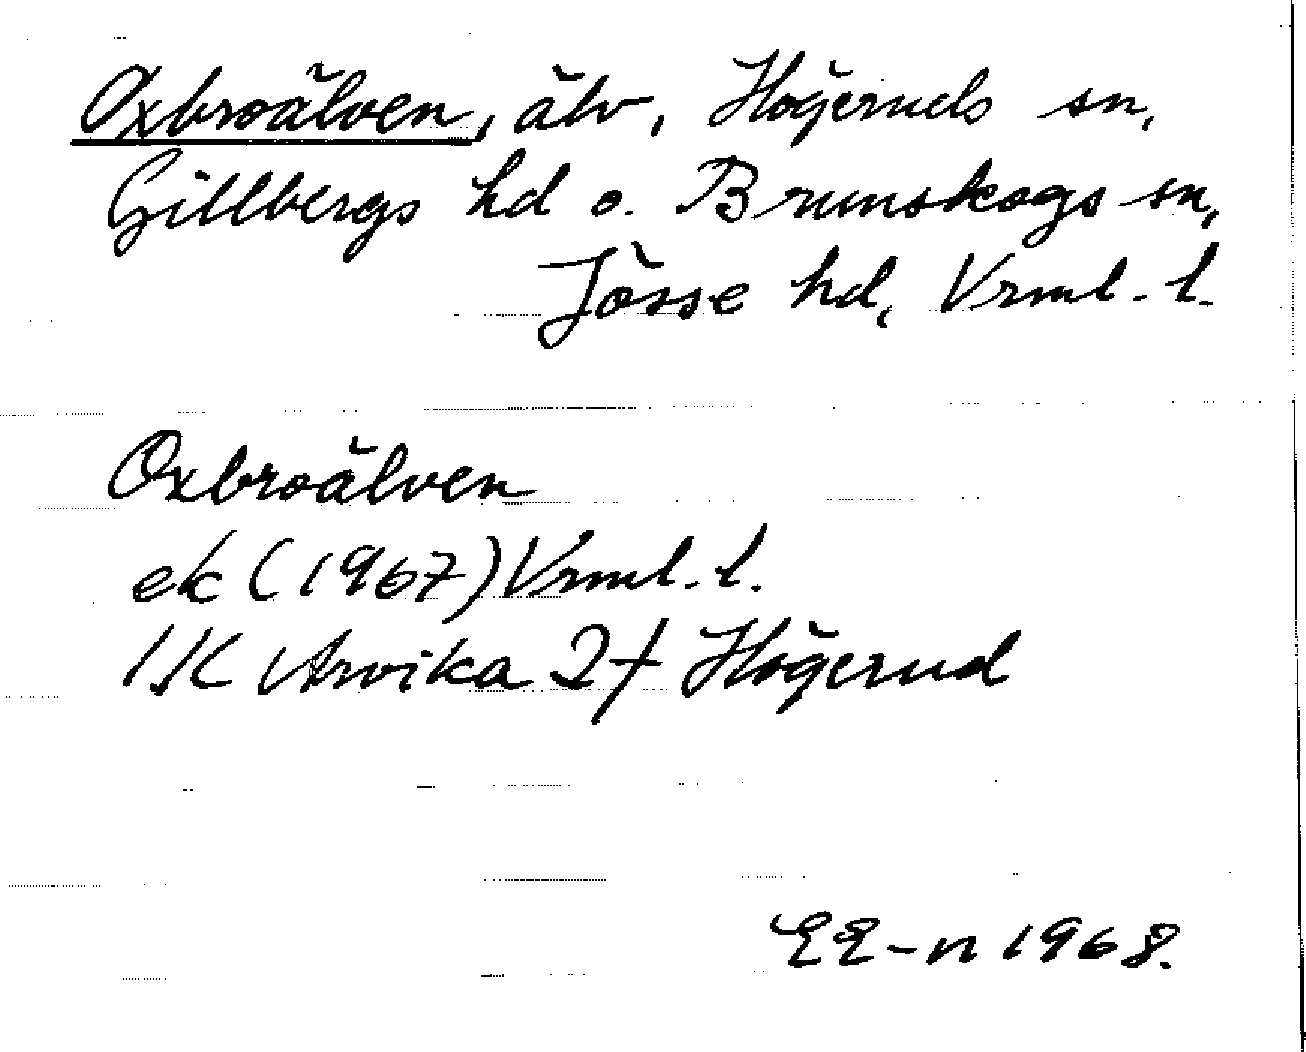 Oxbroälven, älv, Högeruds sn,
Gillbergs hd o. Brunskogs sn,
Jösse hd, Vrml. l.
Oxbroälven
ek (1967) Vrml. l.
IK Arvika 2f Högerud
EE-n 1968.